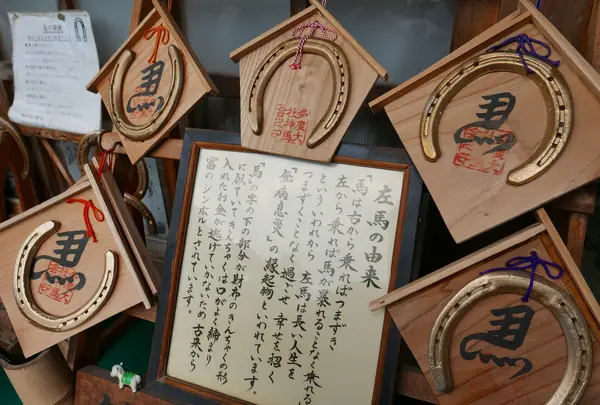 左馬の由来
「馬は右から乗ればつまずき
左から乗れば馬が暴れることなく乗れる
といういわれから 左馬は長い人生を
つまずくことなく過ごせ 幸せを招く
「無病息災」の縁起物といわれています。
馬の字の下の部分が財布のきんちゃくの形
に似ていてきんちゃくは口がよく締まり
入れたお金が逃げていかないため 古来から
富のシンボルとされています。
多度大
社神馬
会之印
馬
馬
馬
馬